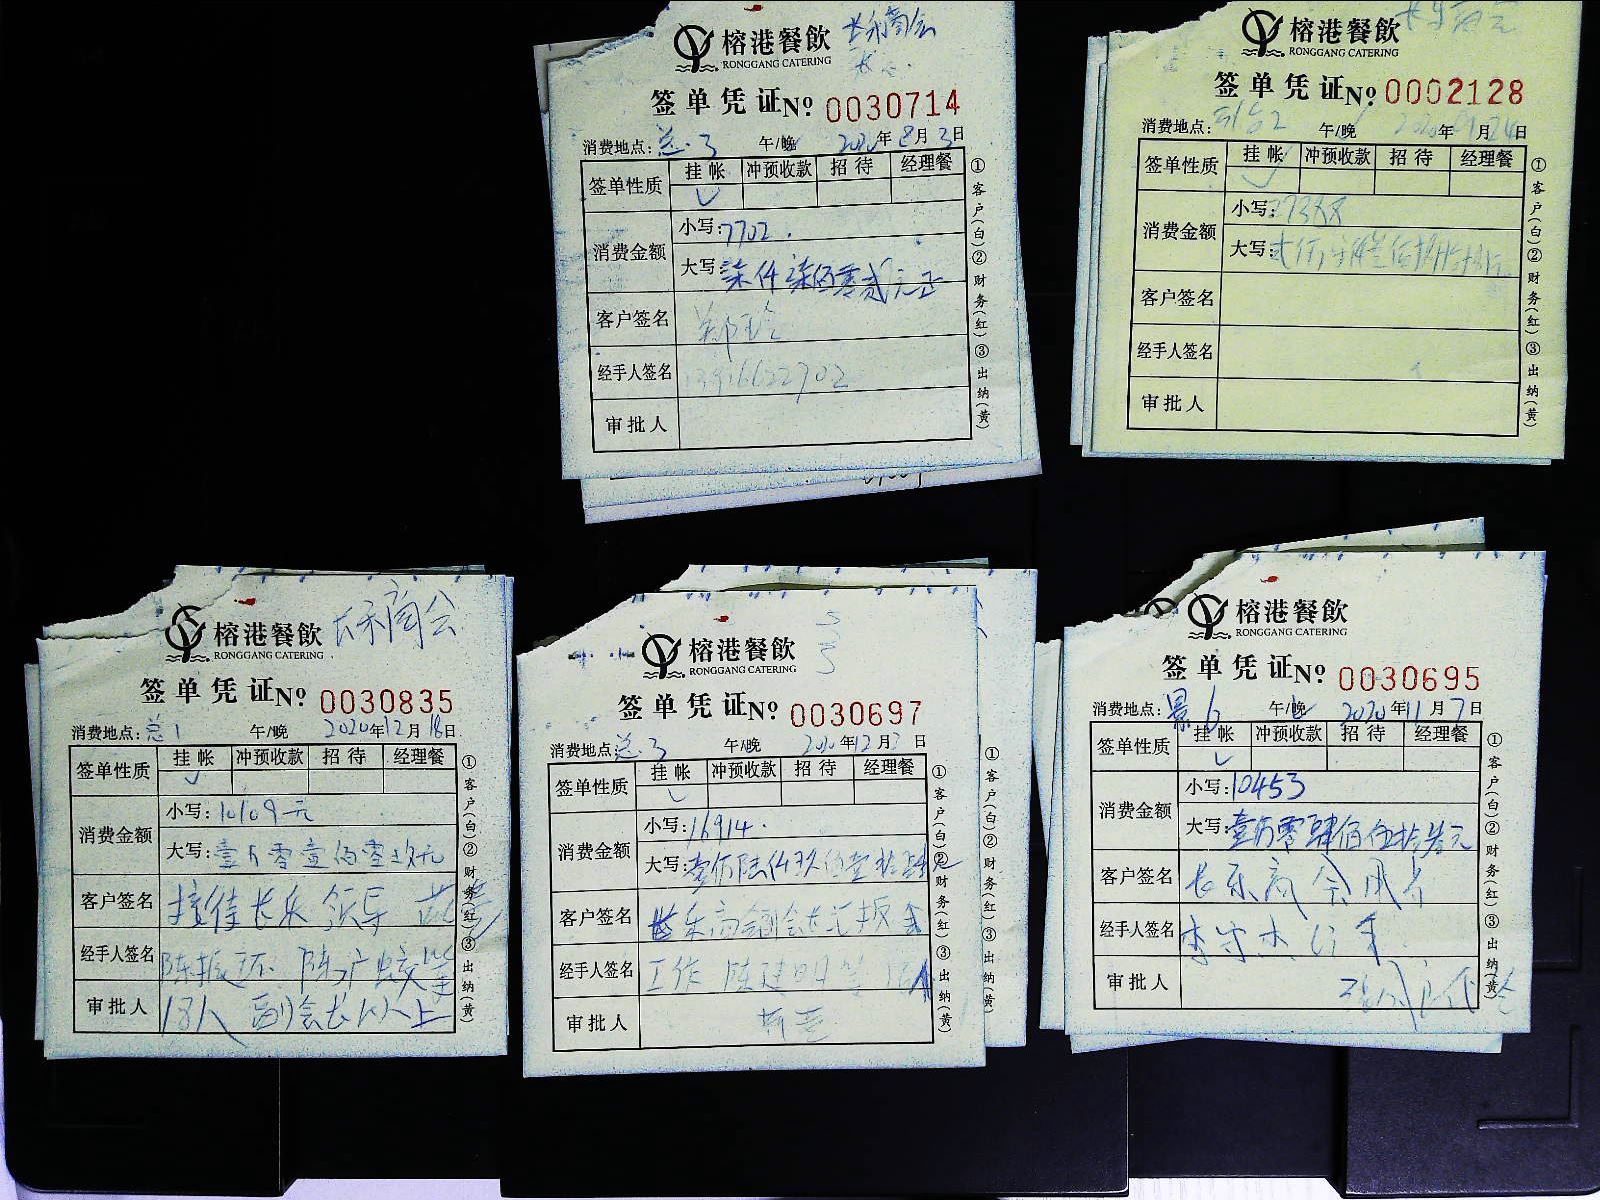 榕港餐飲 长乐商会
RONGGANG CATERING
签单凭证 № 0030714
消费地点：总3 午/晚 2020年8月3日
签单性质 挂帐 冲预收款 招待 经理餐
✓
消费金额 小写：7702.
大写：柒仟柒佰零贰元正
客户签名
经手人签名
审批人
①客户(白)②财务(红)③出纳(黄)
榕港餐飲
RONGGANG CATERING
签单凭证 № 0002128
消费地点： 午/晚 年 月 日
签单性质 挂帐 冲预收款 招待 经理餐
✓
消费金额 小写：
大写：
客户签名
经手人签名
审批人
①客户(白)②财务(红)③出纳(黄)
榕港餐飲 长乐商会
RONGGANG CATERING
签单凭证 № 0030835
消费地点：总1 午/晚 2020年12月18日
签单性质 挂帐 冲预收款 招待 经理餐
✓
消费金额 小写：10109元
大写：壹万零壹佰零玖元
客户签名 接待长乐领导
经手人签名 陈振环
审批人 18人 副会长以上
①客户(白)②财务(红)③出纳(黄)
榕港餐飲
RONGGANG CATERING
签单凭证 № 0030697
消费地点：总3 午/晚 2020年12月 日
签单性质 挂帐 冲预收款 招待 经理餐
✓
消费金额 小写：16914.
大写：壹万陆仟玖佰壹拾肆
客户签名 长乐商会副会长汇报
经手人签名 工作 陈建明等
审批人
①客户(白)②财务(红)③出纳(黄)
①客户(白)②财务(红)③出纳(黄)
榕港餐飲
RONGGANG CATERING
签单凭证 № 0030695
消费地点：景6 午/晚 2020年11月7日
签单性质 挂帐 冲预收款 招待 经理餐
✓
消费金额 小写：10453
大写：壹万零肆佰伍拾叁元
客户签名 长乐商会
经手人签名
审批人
①客户(白)②财务(红)③出纳(黄)